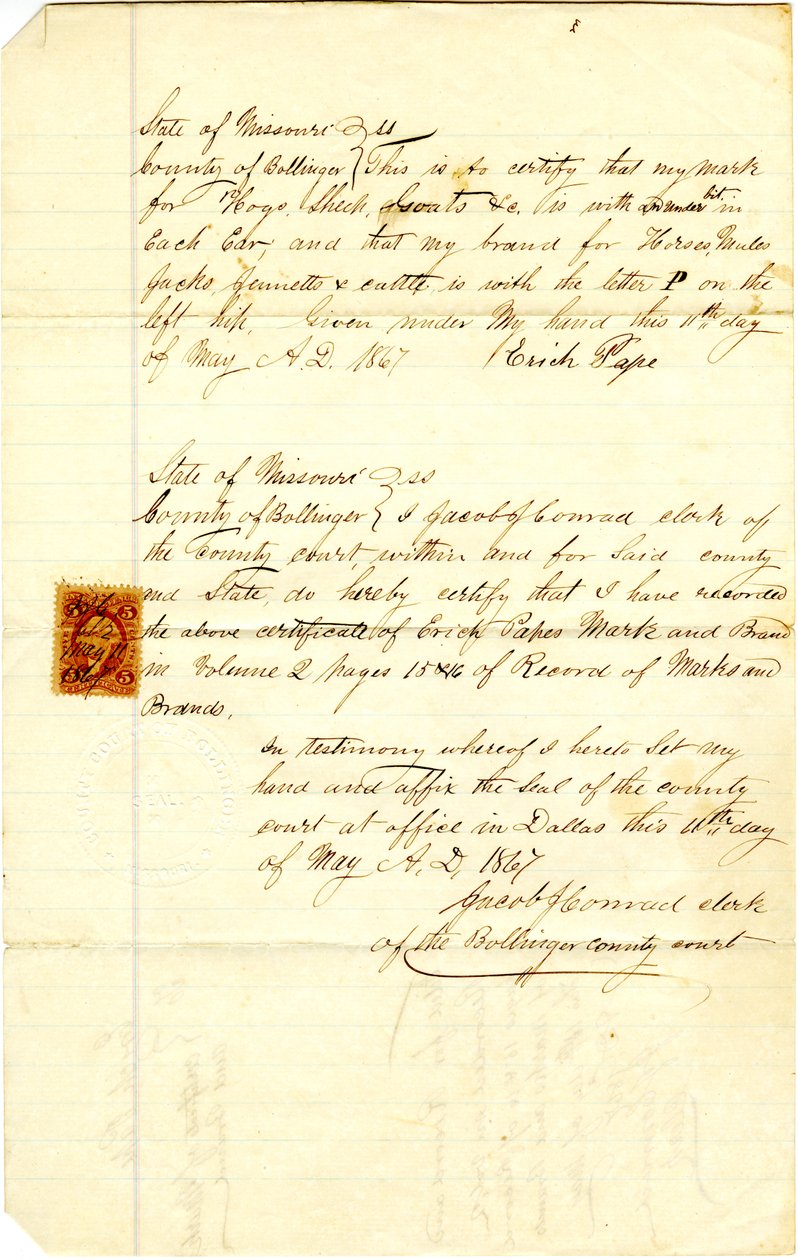 State of Missouri } ss
County of Bollinger } This is to certify that my mark
for Hogs, Sheep, Goats &c. is with an under bit in
Each Ear, and that my brand for Horses, Mules
Jacks, Jennetts & cattle, is with the letter P on the
left hip, Given under My hand this 11th day
of May A.D. 1867 Erich Pape
State of Missouri } ss
County of Bollinger } I Jacob J Conrad clerk of
the County court, within and for Said county
and State, do hereby certify that I have recorded
the above certificate of Erich Papes Mark and Brand
in Volume 2 pages 15 & 16 of Record of Marks and
Brands,
5 5
May 11
1867
5 5
CERTIFICATE
In testimony whereof I hereto Set my
hand and affix the Seal of the county
court at office in Dallas this 11th day
of May A, D, 1867
Jacob J Conrad clerk
of the Bollinger county court
SEAL